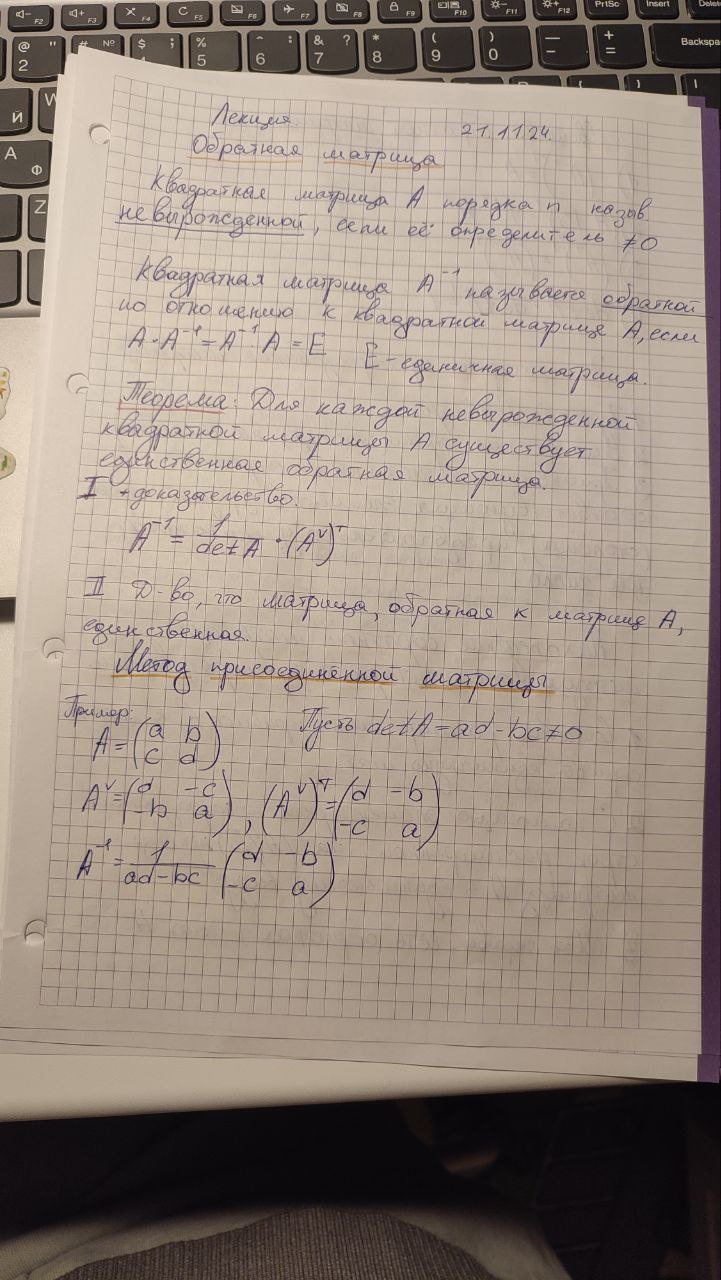 Лекция 21.11.24.
Обратная матрица
Квадратная матрица A порядка n назыв
невырожденной, если её определитель ≠0
Квадратная матрица A⁻¹ называется обратной
по отношению к квадратной матрице A, если
A·A⁻¹=A⁻¹A=E E-единичная матрица.
Теорема: Для каждой невырожденной
квадратной матрицы A существует
единственная обратная матрица.
I + доказательство.
A⁻¹ = 1/det A · (Aᵛ)ᵀ
II Д-во, что матрица, обратная к матрице A,
единственная.
Метод присоединённой матрицы
Пример:
A=(a b; c d) Пусть det A=ad-bc≠0
Aᵛ=(d -c; -b a), (Aᵛ)ᵀ=(d -b; -c a)
A⁻¹= 1/(ad-bc) (d -b; -c a)